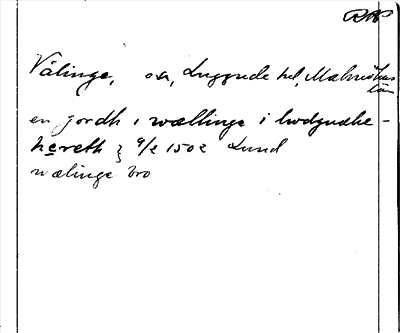 Välinge, sn, Luggude hd, Malmöhus
län
en jordh i wællinge i lwdgudhe-
hereth } 9/2 1502 Lund
wælinge bro